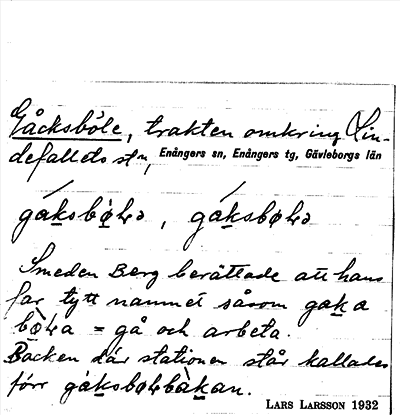 Gåcksböle, trakten omkring Lin-
defallets stn,
Enångers sn, Enångers tg, Gävleborgs län
Smeden Berg berättade att hans
far tytt namnet såsom gaka
= gå och arbeta.
Backen där stationen står kallades
förr
LARS LARSSON 1932